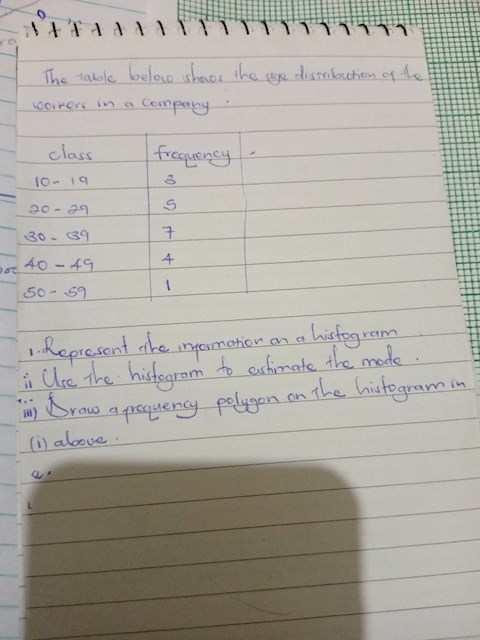 The table below shows the age distribution of the
workers in a company.
class frequency.
10 - 19 3
20 - 29 5
30 - 39 7
40 - 49 4
50 - 59 1
i. Represent the information on a histogram
ii Use the histogram to estimate the mode.
iii) Draw a frequency polygon on the histogram in
(i) above.